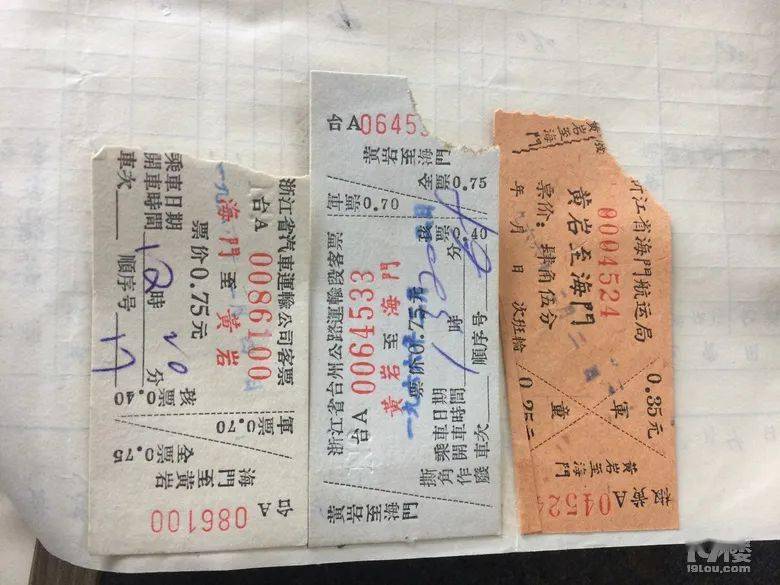 浙江省汽車運輸公司客票
台A 0086100
海門 至 黄岩
票价0.75元
乘車日期
開車時間 12時20分
車次 順序号 17
孩票0.40
軍票0.70
全票0.75
海門至黄岩
台A 086100
台A 06453
黄岩至海門
全票0.75
軍票0.70
孩票0.40
浙江省台州公路運輸段客票
台A 0064533
黄岩 至 海門
票价0.75元
乘車日期
開車時間 時 分
車次 順序号
撕角作廢
黄岩至海門
黄岩至海門
浙江省海門航运局
0004524
黄岩至海門
票价：肆角伍分
年 月 日 次班輪
0.35元
軍
童
黄岩至海門
04524
19楼
19lou.com